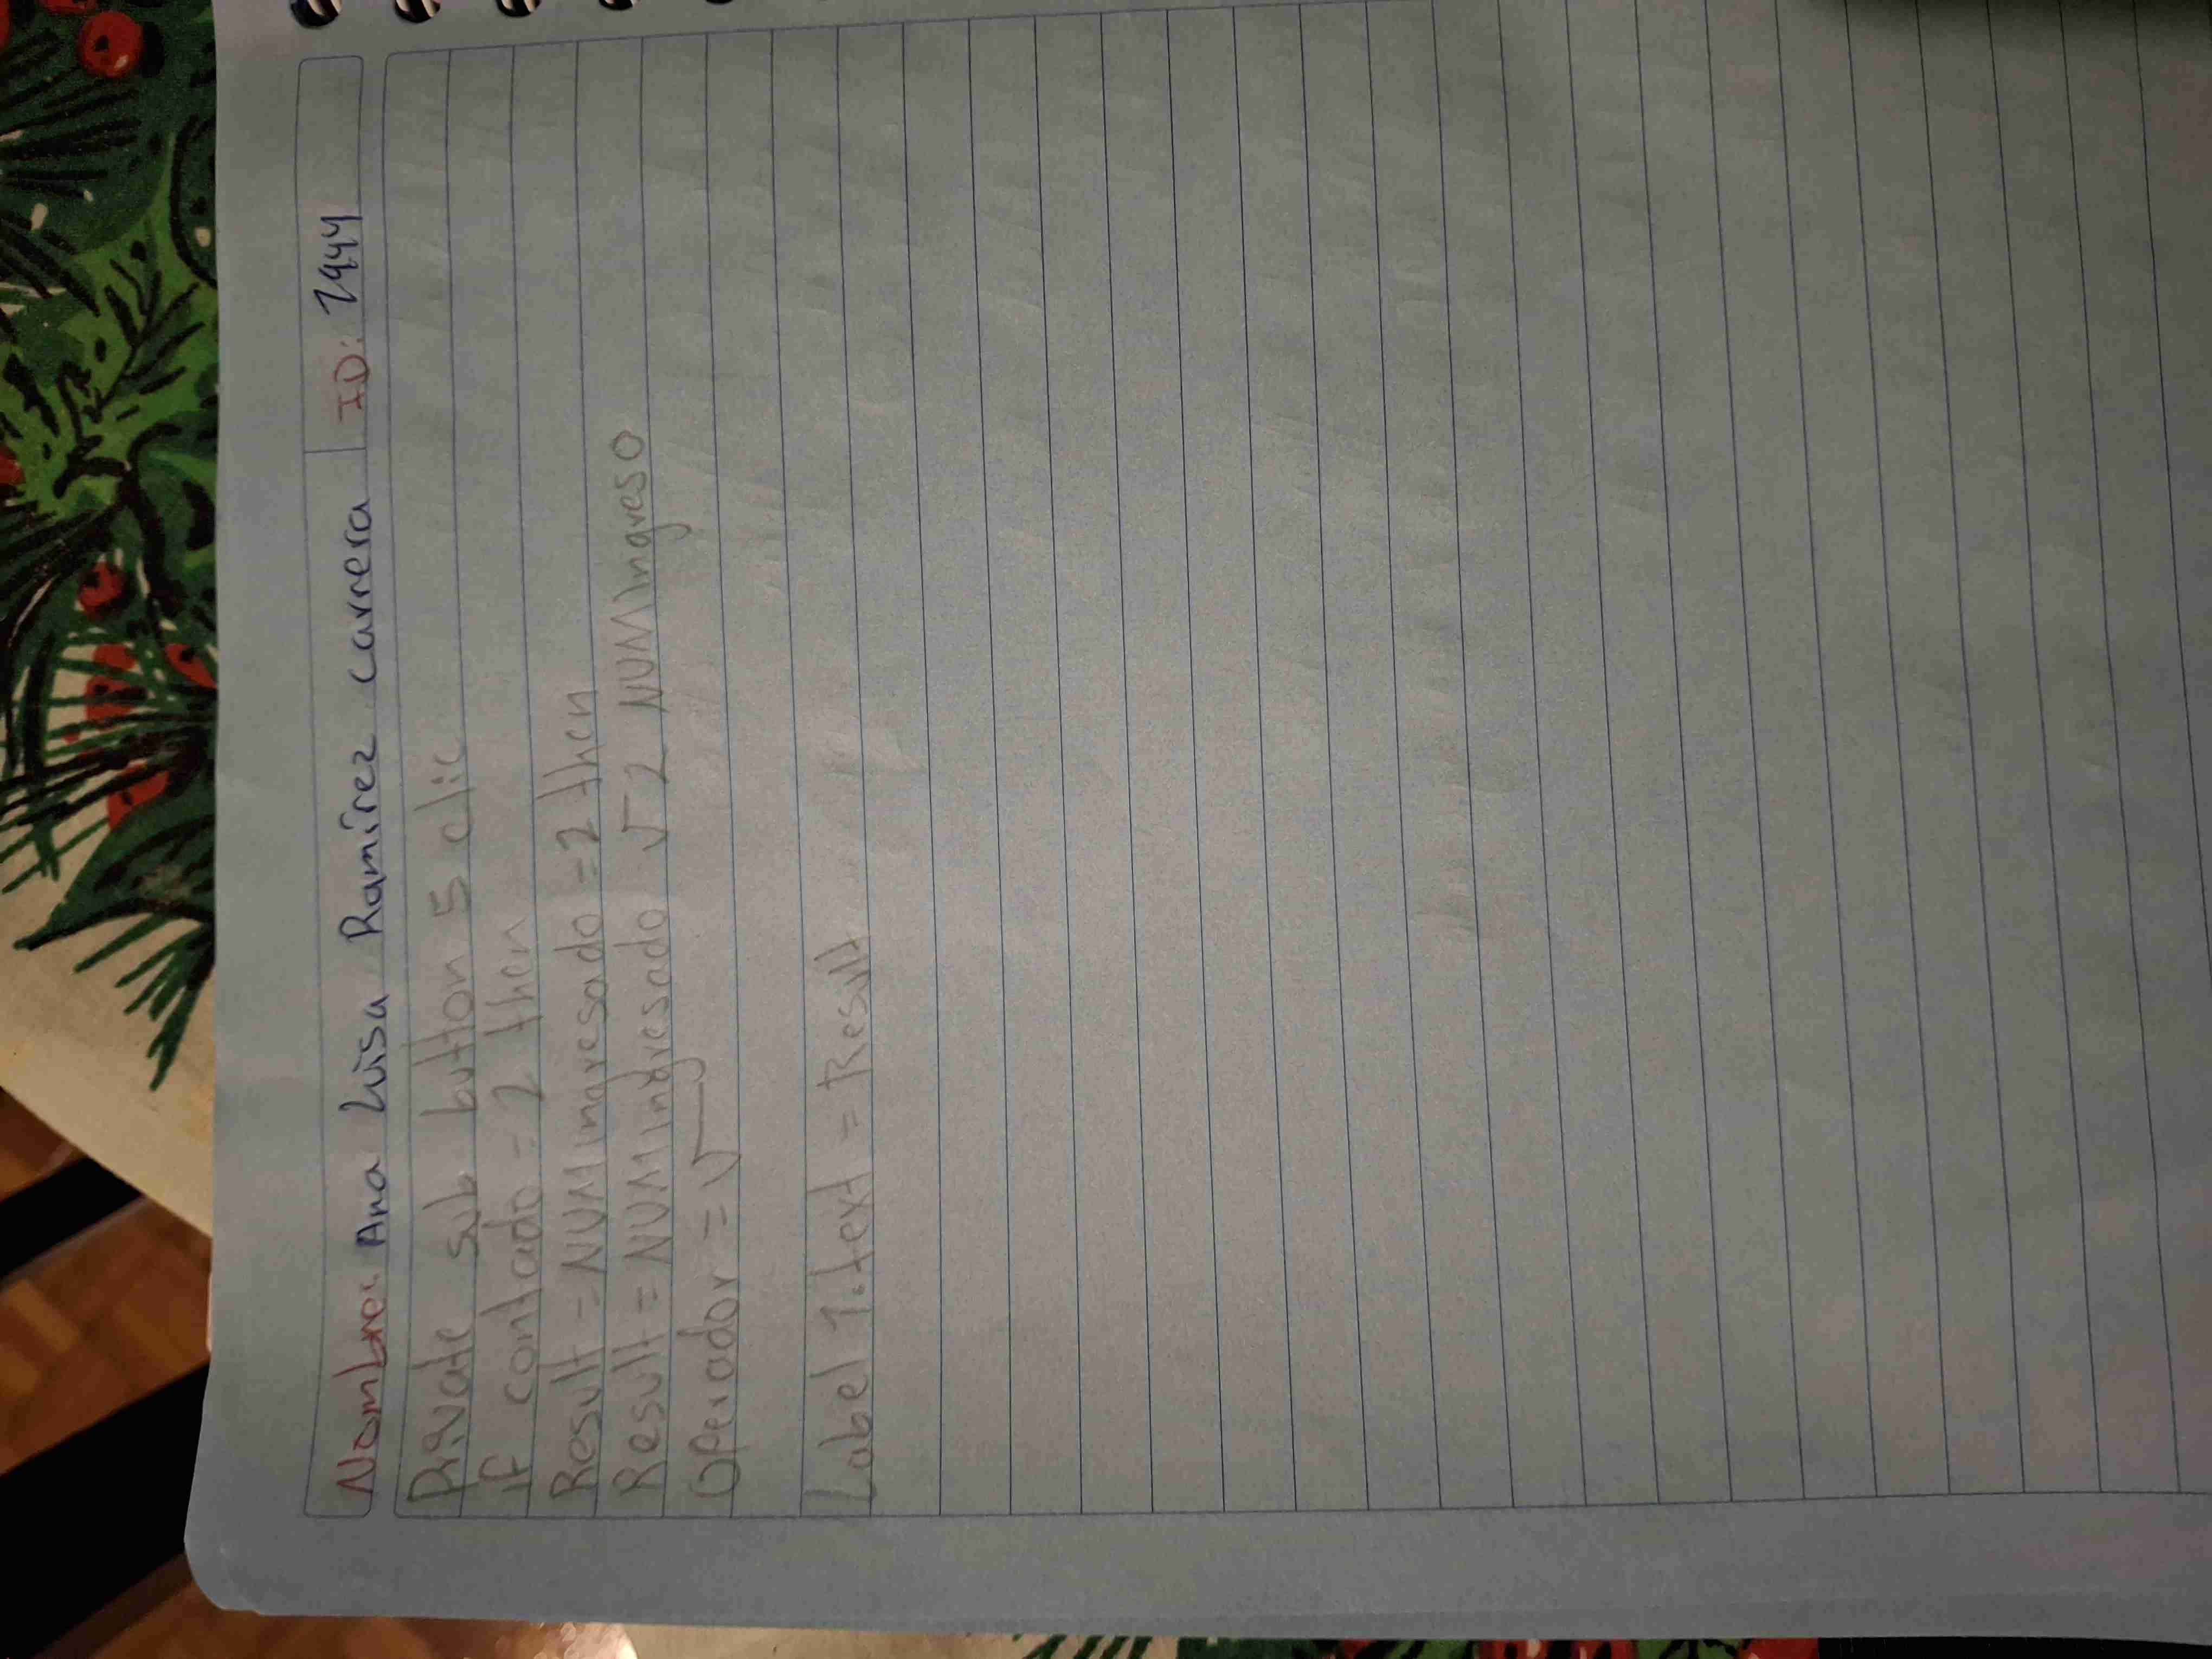 Nombre: Ana Luisa Ramírez carrera ID: 7944
Private sub button 5 clic
IF contado = 2 then
Result = NUMingresado = 2 then
Result = NUMingresado √ 2 NUMingreso
Operador = √
Label 1.text = Result